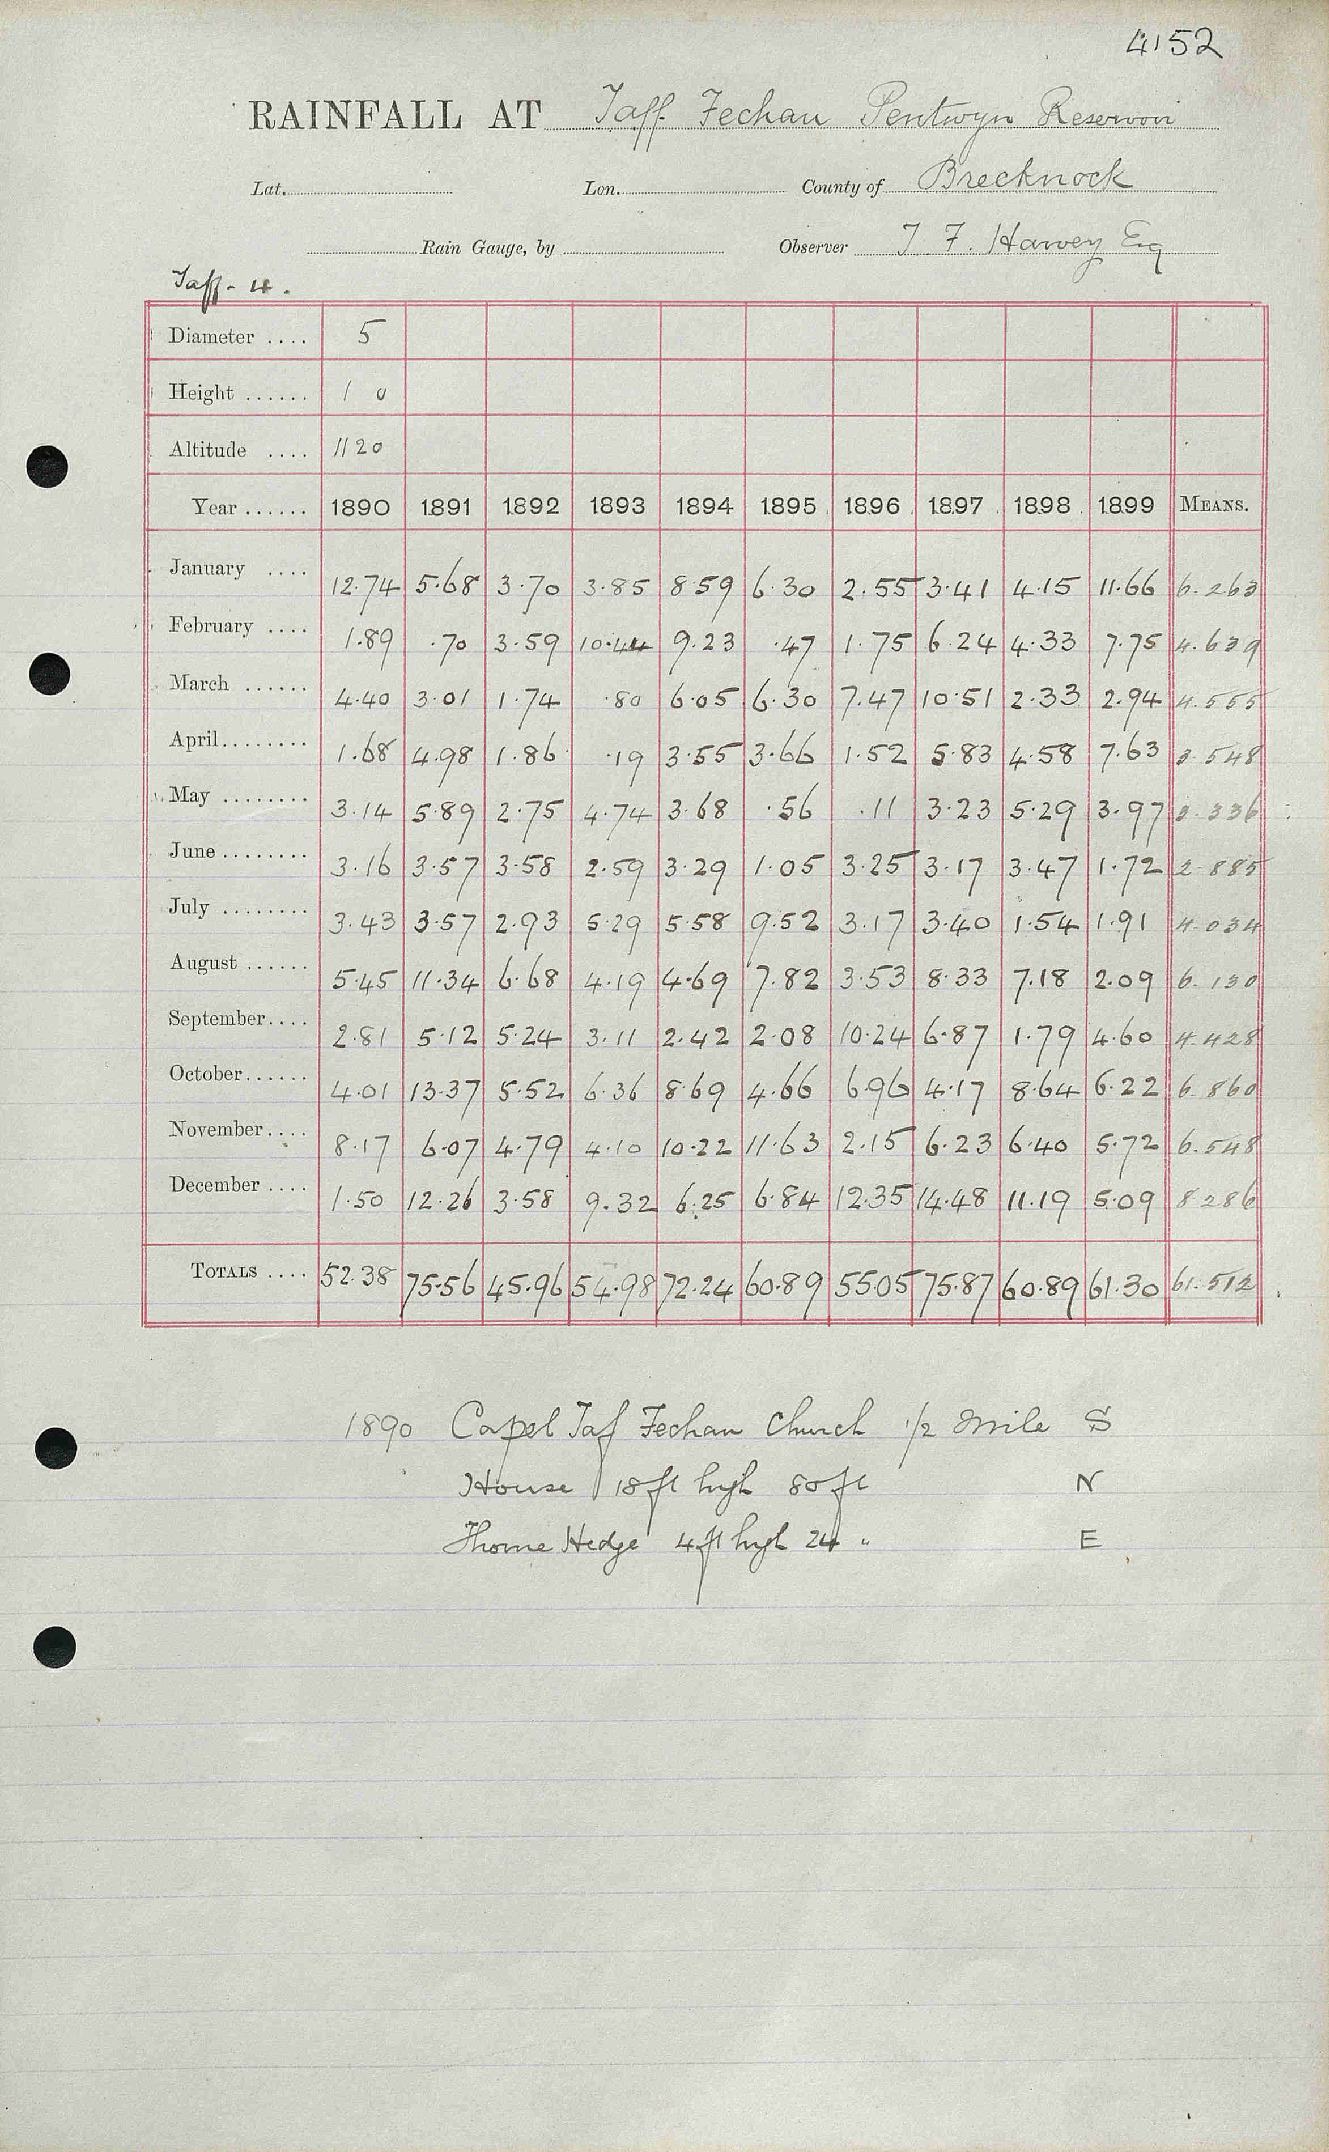 4152
RAINFALL AT Taff Fechan Pentwyn Reservoir
Lat. Lon. County of Brecknock
Rain Gauge, by Observer T F. Harvey Esq
Taff - 4.
Diameter .... 5
Height ...... 1 0
Altitude .... 1120
Year ...... 1890 1891 1892 1893 1894 1895 1896 1897 1898 1899 MEANS.
January .... 12.74 5.68 3.70 3.85 8.59 6.30 2.55 3.41 4.15 11.66 6.263
February .... 1.89 .70 3.59 10.44 9.23 .47 1.75 6.24 4.33 7.75 4.639
March ...... 4.40 3.01 1.74 .80 6.05 6.30 7.47 10.51 2.33 2.94 4.555
April........ 1.68 4.98 1.86 .19 3.55 3.66 1.52 5.83 4.58 7.63 3.548
May ........ 3.14 5.89 2.75 4.74 3.68 .56 .11 3.23 5.29 3.97 3.336
June ........ 3.16 3.57 3.58 2.59 3.29 1.05 3.25 3.17 3.47 1.72 2.885
July ........ 3.43 3.57 2.93 5.29 5.58 9.52 3.17 3.40 1.54 1.91 4.034
August ...... 5.45 11.34 6.68 4.19 4.69 7.82 3.53 8.33 7.18 2.09 6.130
September.... 2.81 5.12 5.24 3.11 2.42 2.08 10.24 6.87 1.79 4.60 4.428
October...... 4.01 13.37 5.52 6.36 8.69 4.66 6.96 4.17 8.64 6.22 6.860
November.... 8.17 6.07 4.79 4.10 10.22 11.63 2.15 6.23 6.40 5.72 6.548
December .... 1.50 12.26 3.58 9.32 6.25 6.84 12.35 14.48 11.19 5.09 8.286
TOTALS .... 52.38 75.56 45.96 54.98 72.24 60.89 55.05 75.87 60.89 61.30 61.512
1890 Capel Taf Fechan Church 1/2 mile S
House 18 ft high 80 ft N
Thorne Hedge 4 ft high 24 " E